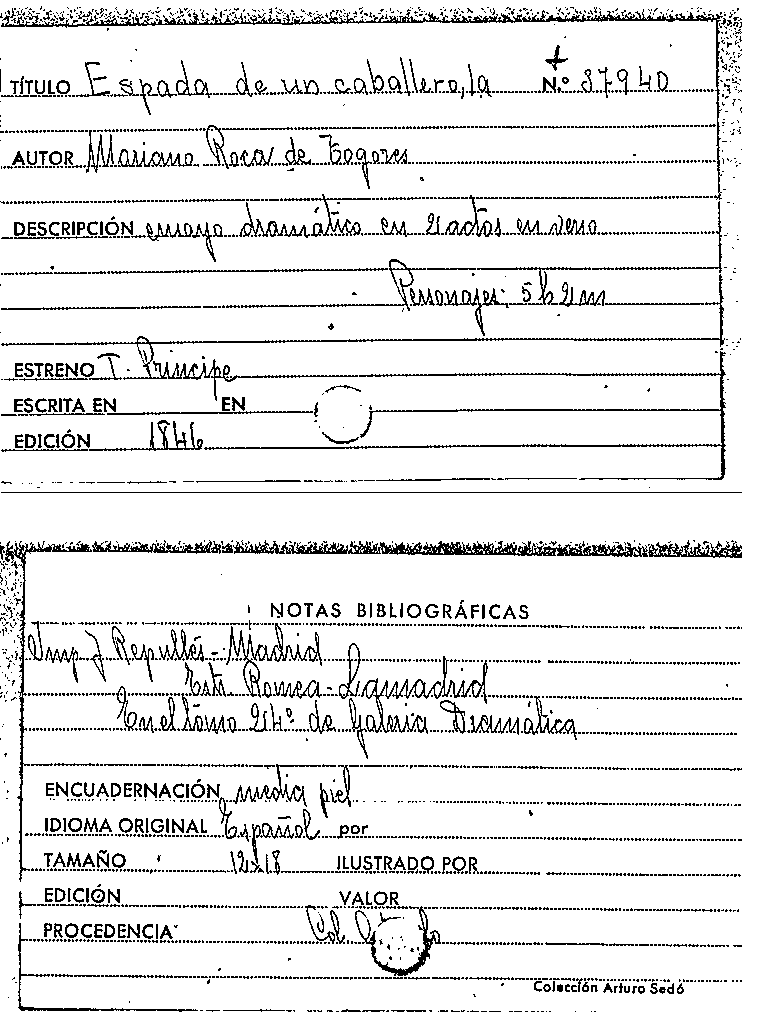 TÍTULO Espada de un caballero, la N.º 37940
AUTOR Mariano Roca de Togores
DESCRIPCIÓN ensayo dramático en 2 actos en verso
Personajes: 5 h 2 m
ESTRENO T. Principe
ESCRITA EN EN
EDICIÓN 1846
NOTAS BIBLIOGRÁFICAS
Imp J Repullés - Madrid
Estr. Romea - Lamadrid
En el tomo 24º de Galeria Dramática
ENCUADERNACIÓN media piel
IDIOMA ORIGINAL Español por
TAMAÑO 12x18 ILUSTRADO POR
EDICIÓN VALOR
PROCEDENCIA Col.
Colección Arturo Sedó